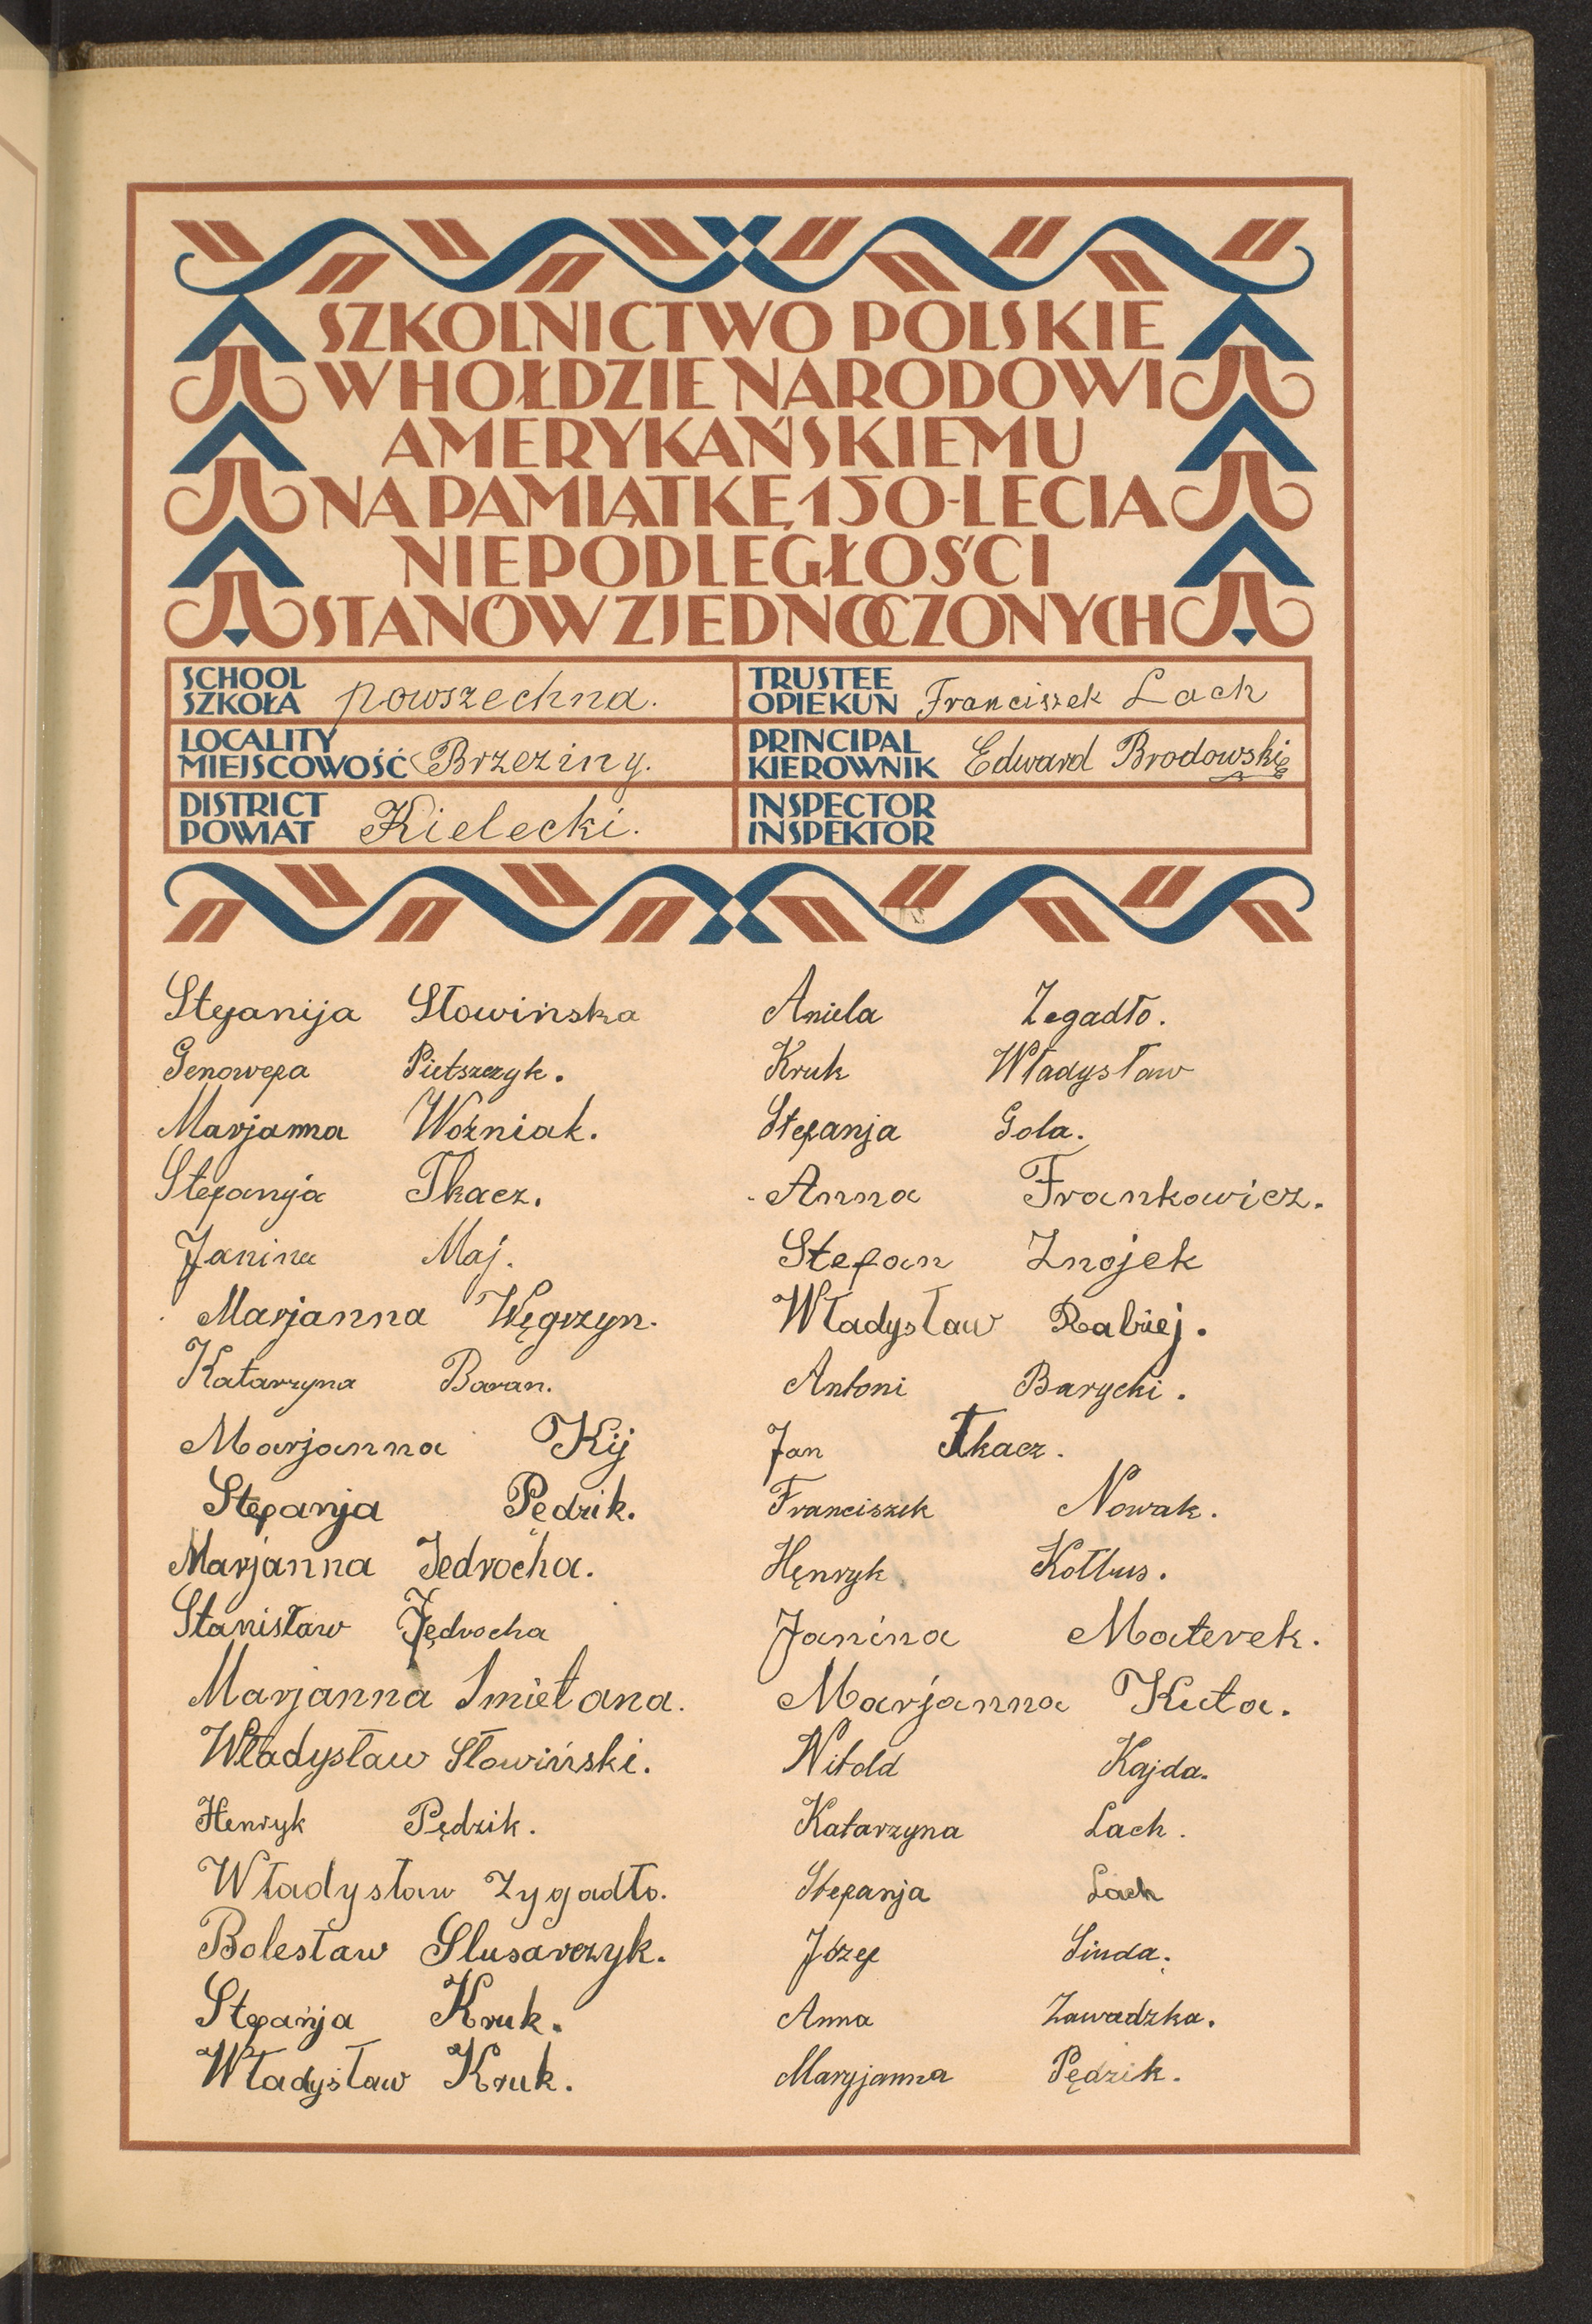 SZKOLNICTWO POLSKIE
W HOŁDZIE NARODOWI
AMERYKAŃSKIEMU
NA PAMIĄTKĘ 150-LECIA
NIEPODLEGŁOŚCI
STANÓW ZJEDNOCZONYCH
SCHOOL
SZKOŁA powszechna.
TRUSTEE
OPIEKUN Franciszek Lach
LOCALITY
MIEJSCOWOŚĆ Brzeziny.
PRINCIPAL
KIEROWNIK Edward Brodowski
DISTRICT
POWIAT Kielecki.
INSPECTOR
INSPEKTOR
Stefanija Słowińska
Genowefa Pietszczyk.
Marjanna Woźniak.
Stefanja Tkacz.
Janina Maj.
Marjanna Węgrzyn.
Katarzyna Baran.
Marjanna Kij
Stefanja Pedzik.
Marjanna Jedrocha.
Stanisław Jędrocha
Marjanna Smietana.
Władysław Słowiński.
Henryk Pędzik.
Władysław Zygadło.
Bolesław Slusarczyk.
Stefanja Kruk.
Władysław Kruk.
Aniela Zegadło.
Kruk Władysław
Stefanja Gola.
Anna Frankowicz.
Stefan Znojek
Władysław Rabiej.
Antoni Barycki.
Jan Tkacz.
Franciszek Nowak.
Hęnryk Kołbus.
Janina Materek.
Marjanna Kuta.
Witold Kajda.
Katarzyna Lach.
Stefanja Lach
Józef Sinda.
Anna Zawadzka.
Maryjanna Pędzik.